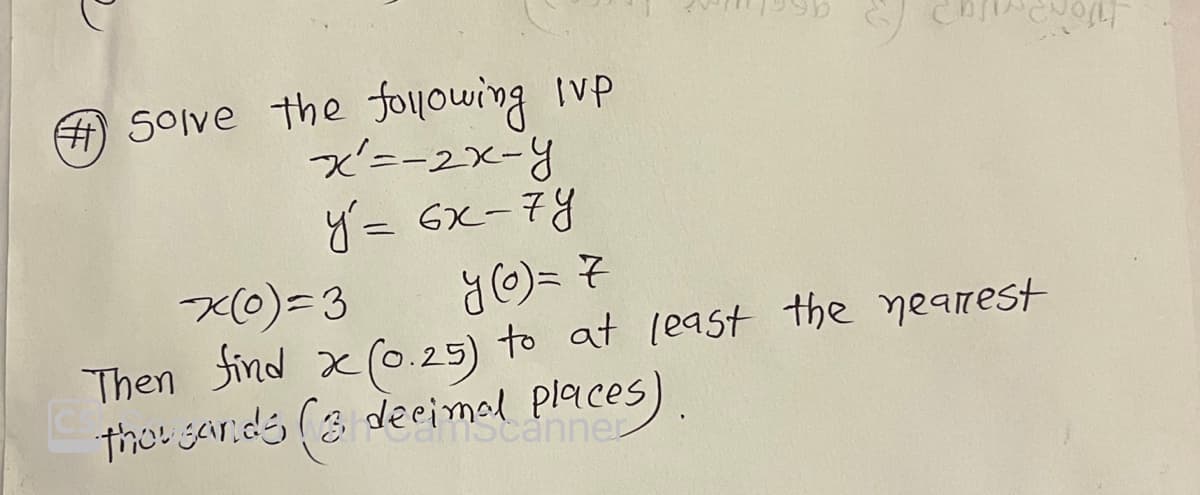 # solve the following IVP
x'=-2x-y
y'= 6x-7y
x(0)=3 y(0)= 7
Then find x(0.25) to at least the nearest
thousands (3 decimal places).
CS